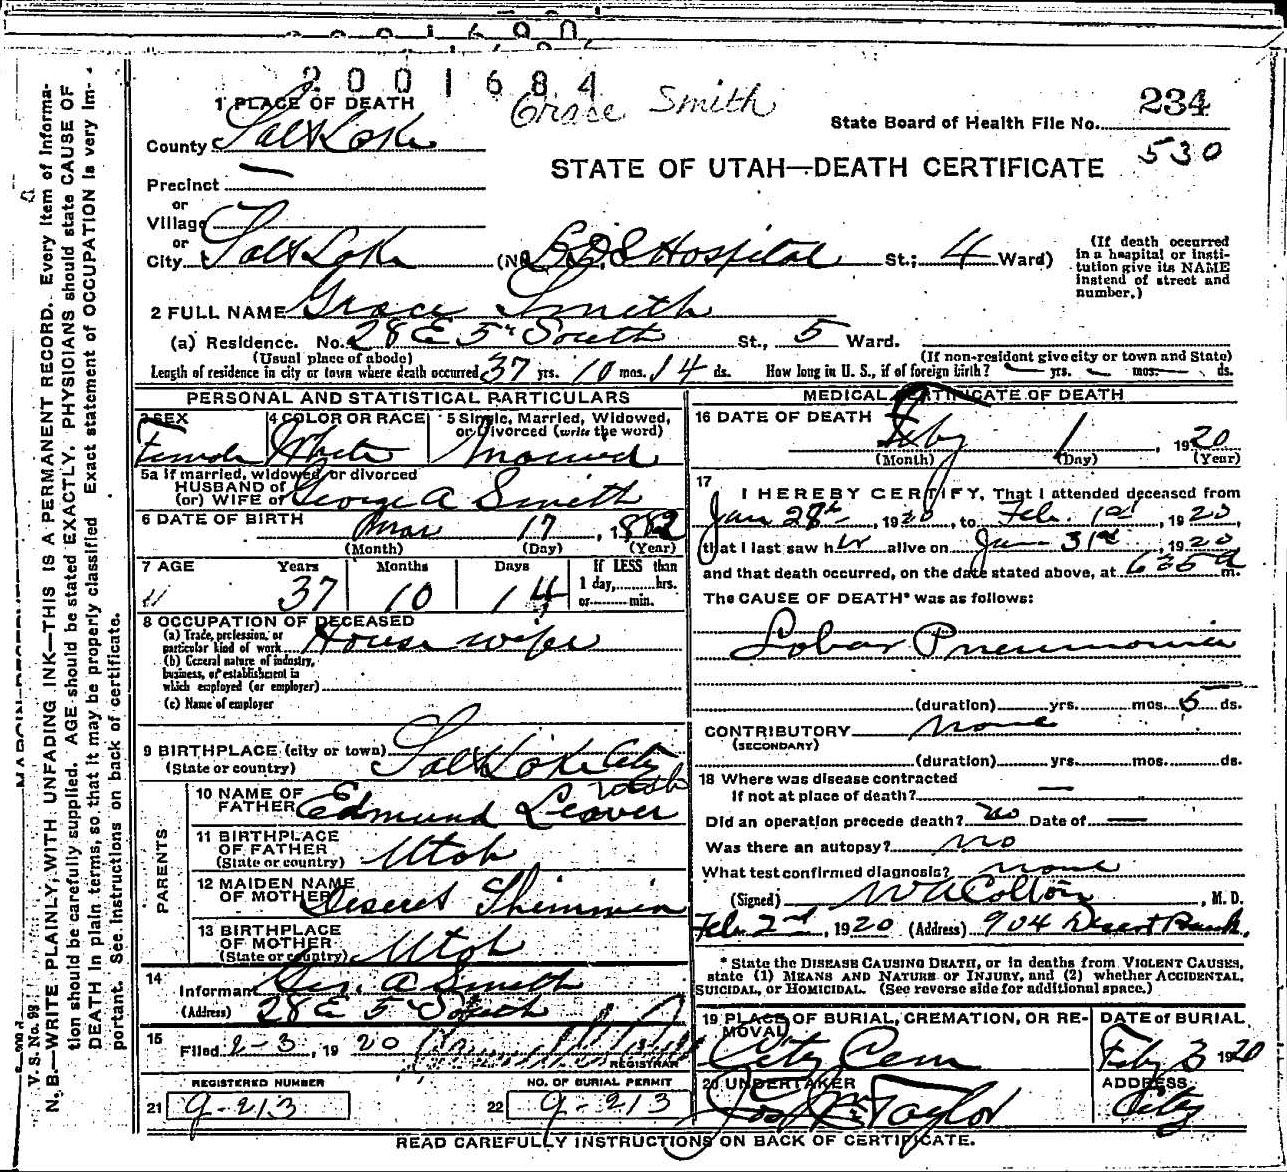 2001684
Grace Smith
1 PLACE OF DEATH
County Salt Lake
State Board of Health File No. 234
530
STATE OF UTAH—DEATH CERTIFICATE
Precinct —
or
Village
or
City Salt Lake (No. L.D.S. Hospital St.; 4 Ward)
(If death occurred in a hospital or institution give its NAME instead of street and number.)
2 FULL NAME Grace Smith
(a) Residence. No. 28 E 5th South St., 5 Ward.
(Usual place of abode) (If non-resident give city or town and State)
Length of residence in city or town where death occurred 37 yrs. 10 mos. 14 ds. How long in U. S., if of foreign birth? — yrs. — mos. — ds.
PERSONAL AND STATISTICAL PARTICULARS
3 SEX Female
4 COLOR OR RACE White
5 Single, Married, Widowed, or Divorced (write the word) Married
5a If married, widowed, or divorced
HUSBAND of
(or) WIFE of George A Smith
6 DATE OF BIRTH Mar 17, 1882
(Month) (Day) (Year)
7 AGE Years Months Days If LESS than
37 10 14 1 day, hrs.
or min.
8 OCCUPATION OF DECEASED
(a) Trade, profession, or
particular kind of work House wife
(b) General nature of industry,
business, or establishment in
which employed (or employer)
(c) Name of employer
9 BIRTHPLACE (city or town) Salt Lake City
(State or country) Utah
PARENTS
10 NAME OF FATHER Edmund Leaver
11 BIRTHPLACE OF FATHER (State or country) Utah
12 MAIDEN NAME OF MOTHER Deseret Shimmin
13 BIRTHPLACE OF MOTHER (State or country) Utah
14 Informant Geo. A Smith
(Address) 28 E 5th South
15 Filed 2-3, 1920
REGISTRAR
REGISTERED NUMBER NO. OF BURIAL PERMIT
21 9-213 22 9-213
MEDICAL CERTIFICATE OF DEATH
16 DATE OF DEATH Feby 1, 1920
(Month) (Day) (Year)
17 I HEREBY CERTIFY, That I attended deceased from
Jan 28th, 1920, to Feb. 1st, 1920,
that I last saw her alive on Jan 31st, 1920
and that death occurred, on the date stated above, at 6:35 a m.
The CAUSE OF DEATH* was as follows:
Lobar Pneumonia
(duration) yrs. mos. 5 ds.
CONTRIBUTORY none
(SECONDARY)
(duration) yrs. mos. ds.
18 Where was disease contracted
If not at place of death? —
Did an operation precede death? no Date of —
Was there an autopsy? no
What test confirmed diagnosis? none
(Signed) W A Colton, M. D.
Feb. 2nd, 1920 (Address) 904 Desert Bank.
* State the DISEASE CAUSING DEATH, or in deaths from VIOLENT CAUSES,
state (1) MEANS AND NATURE OF INJURY, and (2) whether ACCIDENTAL,
SUICIDAL, or HOMICIDAL. (See reverse side for additional space.)
19 PLACE OF BURIAL, CREMATION, OR REMOVAL City Cem
DATE OF BURIAL Feby 3 1920
20 UNDERTAKER Jos Wm Taylor
ADDRESS City
READ CAREFULLY INSTRUCTIONS ON BACK OF CERTIFICATE.
V. S. No. 98
N. B.—WRITE PLAINLY, WITH UNFADING INK—THIS IS A PERMANENT RECORD. Every item of information should be carefully supplied. AGE should be stated EXACTLY. PHYSICIANS should state CAUSE OF DEATH in plain terms, so that it may be properly classified. Exact statement of OCCUPATION is very important. See instructions on back of certificate.